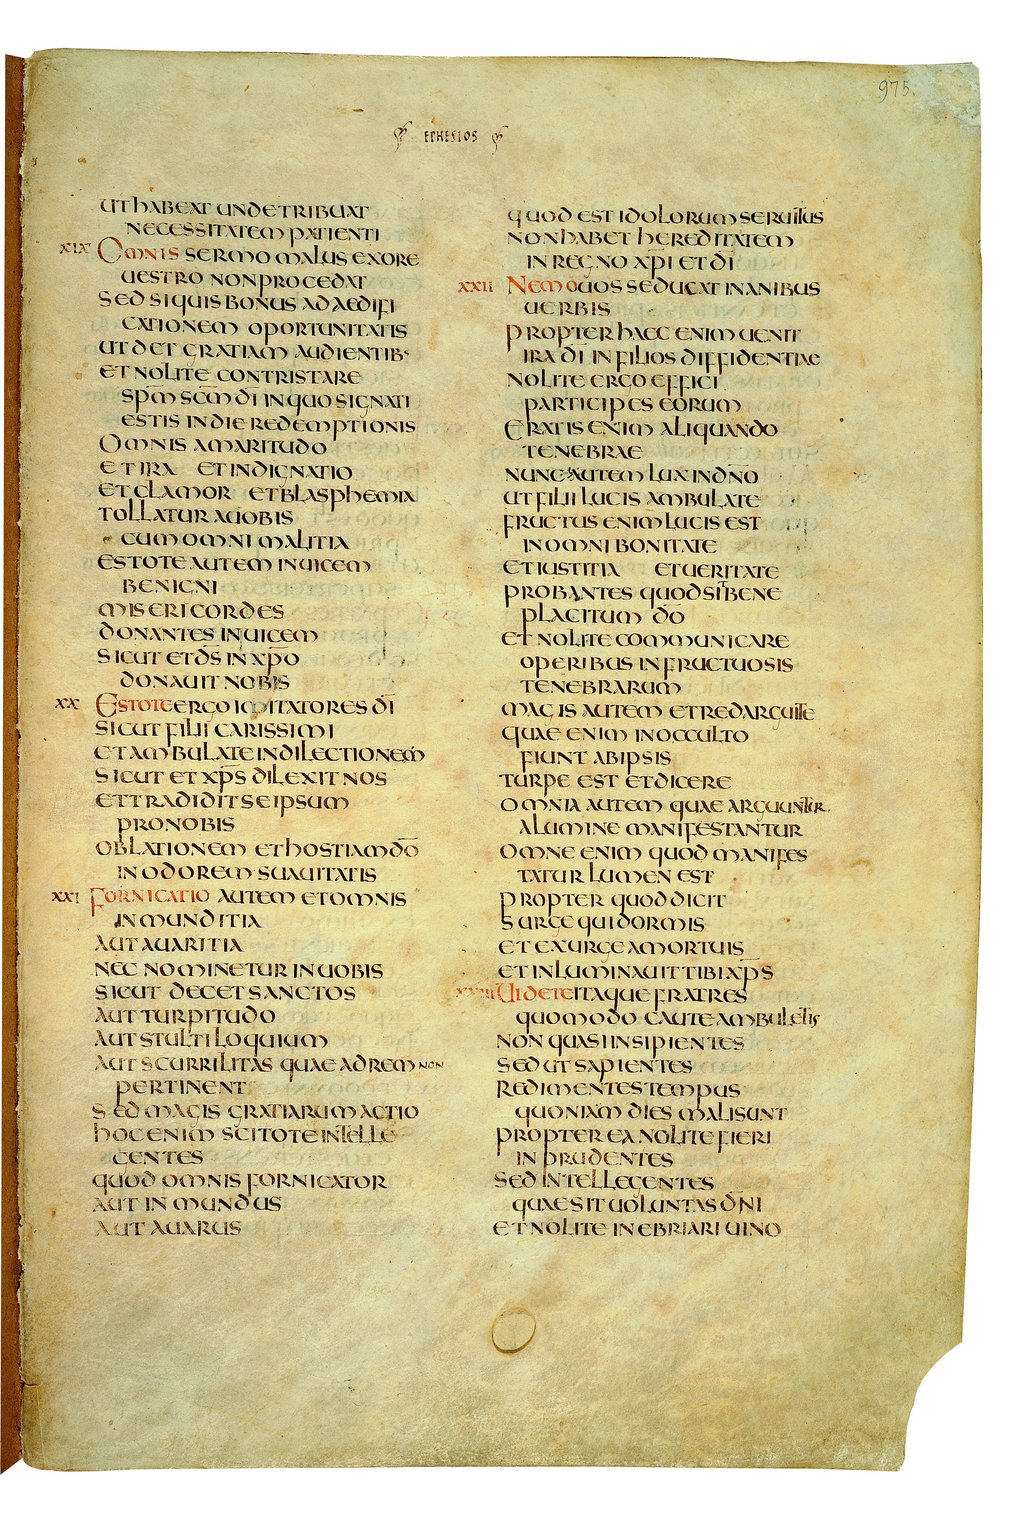 975.
EPHESIOS
UT HABEAT UNDE TRIBUAT
NECESSITATEM PATIENTI
XIX OMNIS SERMO MALUS EX ORE
UESTRO NON PROCEDAT
SED SI QUIS BONUS AD AEDIFI
CATIONEM OPORTUNITATIS
UT DET GRATIAM AUDIENTIB·
ET NOLITE CONTRISTARE
SP̅M SC̅M DI̅ IN QUO SIGNATI
ESTIS IN DIE REDEMPTIONIS
OMNIS AMARITUDO
ET IRA ET INDIGNATIO
ET CLAMOR ET BLASPHEMIA
TOLLATUR A UOBIS
CUM OMNI MALITIA
ESTOTE AUTEM INUICEM
BENIGNI
MISERICORDES
DONANTES INUICEM
SICUT ET DS̅ IN XP̅O
DONAUIT NOBIS
XX ESTOTE ERGO IMITATORES DI̅
SICUT FILII CARISSIMI
ET AMBULATE IN DILECTIONEM
SICUT ET XP̅S DILEXIT NOS
ET TRADIDIT SEIPSUM
PRO NOBIS
OBLATIONEM ET HOSTIAM DO̅
IN ODOREM SUAUITATIS
XXI FORNICATIO AUTEM ET OMNIS
INMUNDITIA
AUT AUARITIA
NEC NOMINETUR IN UOBIS
SICUT DECET SANCTOS
AUT TURPITUDO
AUT STULTILOQUIUM
AUT SCURRILITAS QUAE AD REM NON
PERTINENT
SED MAGIS GRATIARUM ACTIO
HOC ENIM SCITOTE INTELLE
GENTES
QUOD OMNIS FORNICATOR
AUT INMUNDUS
AUT AUARUS
QUOD EST IDOLORUM SERUITUS
NON HABET HEREDITATEM
IN REGNO XP̅I ET DI̅
XXII NEMO UOS SEDUCAT INANIBUS
UERBIS
PROPTER HAEC ENIM UENIT
IRA DI̅ IN FILIOS DIFFIDENTIAE
NOLITE ERGO EFFICI
PARTICIPES EORUM
ERATIS ENIM ALIQUANDO
TENEBRAE
NUNC AUTEM LUX IN DN̅O
UT FILII LUCIS AMBULATE
FRUCTUS ENIM LUCIS EST
IN OMNI BONITATE
ET IUSTITIA ET UERITATE
PROBANTES QUOD SIT BENE
PLACITUM DO̅
ET NOLITE COMMUNICARE
OPERIBUS INFRUCTUOSIS
TENEBRARUM
MAGIS AUTEM ET REDARGUITE
QUAE ENIM IN OCCULTO
FIUNT AB IPSIS
TURPE EST ET DICERE
OMNIA AUTEM QUAE ARGUUNTUR
A LUMINE MANIFESTANTUR
OMNE ENIM QUOD MANIFES
TATUR LUMEN EST
PROPTER QUOD DICIT
SURGE QUI DORMIS
ET EXURGE A MORTUIS
ET INLUMINAUIT TIBI XP̅S
XXIII UIDETE ITAQUE FRATRES
QUOMODO CAUTE AMBULETIS
NON QUASI INSIPIENTES
SED UT SAPIENTES
REDIMENTES TEMPUS
QUONIAM DIES MALI SUNT
PROPTEREA NOLITE FIERI
INPRUDENTES
SED INTELLEGENTES
QUAE SIT UOLUNTAS DN̅I
ET NOLITE INEBRIARI UINO